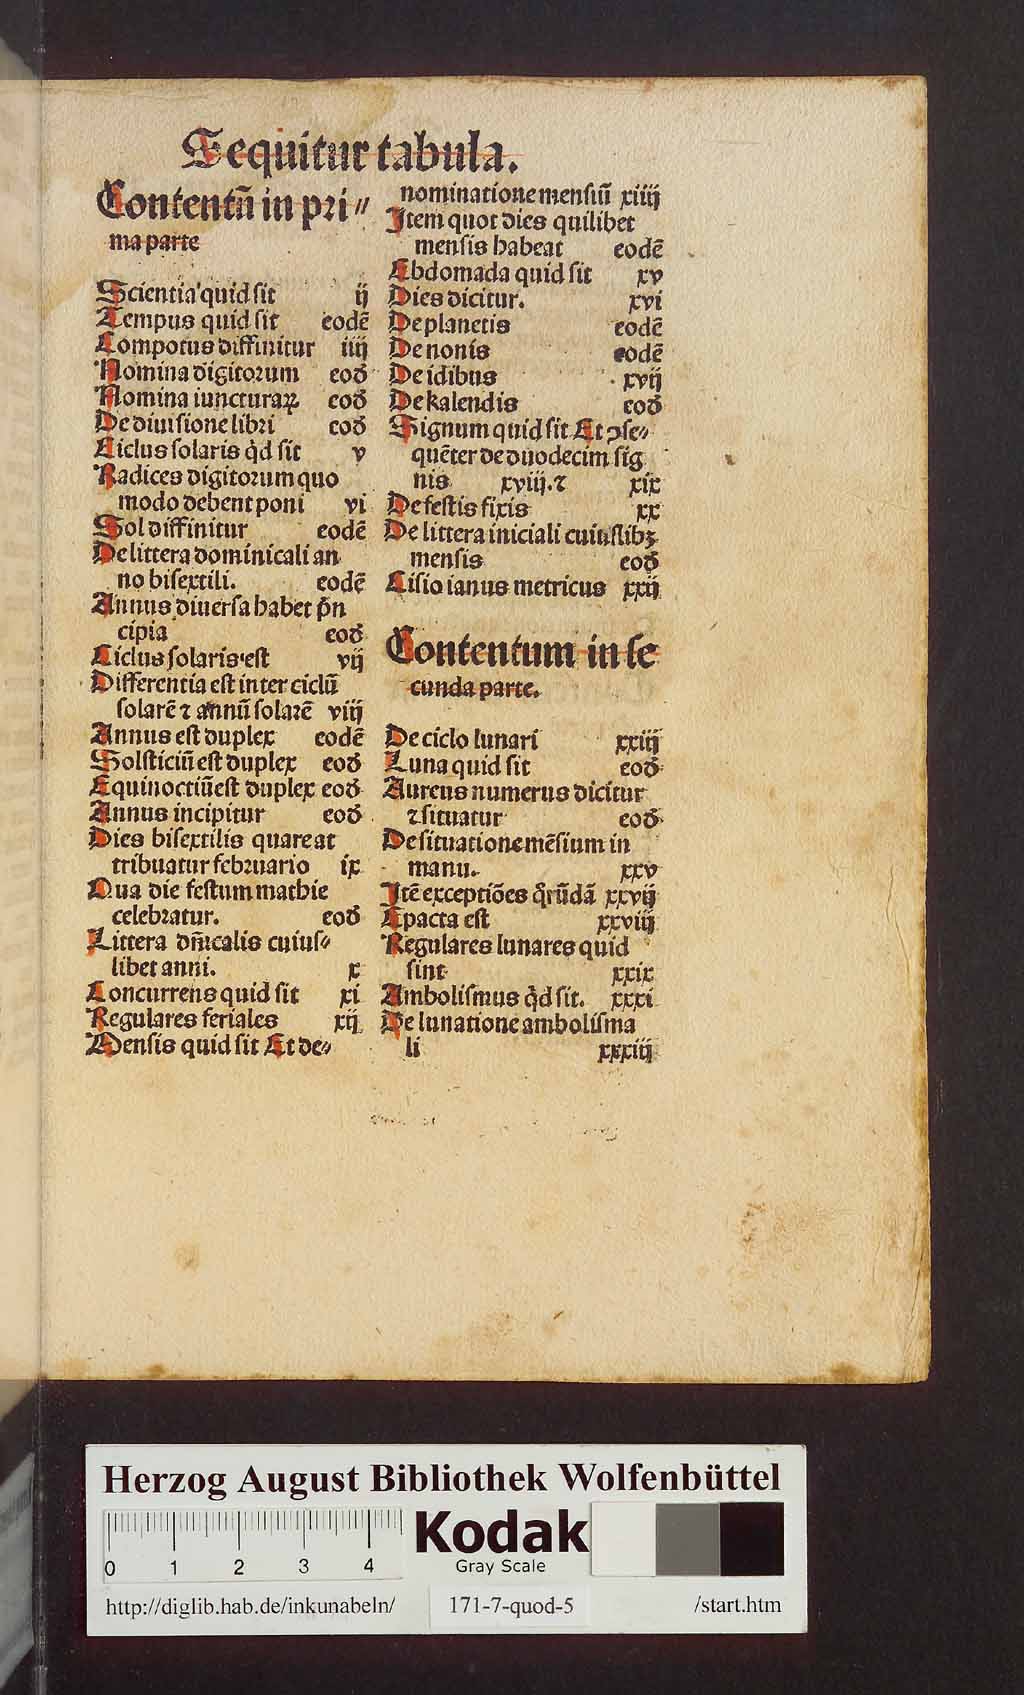 Sequitur tabula.
Contentū in pri⸗
ma parte
Scientia quid sit ij
Tempus quid sit eodē
Compotus diffinitur iiij
Nomina digitorum eod
Nomina iuncturaꝝ eod
De diuisione libri eod
Ciclus solaris qd sit v
Radices digitorum quo
modo debent poni vi
Sol diffinitur eodē
De littera dominicali an
no bisextili. eodē
Annus diuersa habet prin
cipia eod
Ciclus solaris est vij
Differentia est inter ciclū
solarē ⁊ annū solarē viij
Annus est duplex eodē
Solsticiū est duplex eod
Equinoctiū est duplex eod
Annus incipitur eod
Dies bisextilis quare at
tribuatur februario ix
Qua die festum mathie
celebratur. eod
Littera dn̄icalis cuius⸗
libet anni. x
Concurrens quid sit xi
Regulares feriales xij
Mensis quid sit Et de⸗
nominatione mensiū xiiij
Item quot dies quilibet
mensis habeat eodē
Ebdomada quid sit xv
Dies dicitur. xvi
De planetis eodē
De nonis eodē
De idibus xvij
De kalendis eod
Signum quid sit Et ꝯse⸗
quēter de duodecim sig
nis xviij. ⁊ xix
De festis fixis xx
De littera iniciali cuiuslibꝫ
mensis eod
Cisio ianus metricus xxij
Contentum in se
cunda parte.
De ciclo lunari xxiij
Luna quid sit eod
Aureus numerus dicitur
⁊ situatur eod
De situatione mēsium in
manu. xxv
Itē exceptiōes qrūdā xxvij
Epacta est xxviij
Regulares lunares quid
sint xxix
Ambolismus qd sit. xxxi
De lunatione ambolisma
li xxxiij
Herzog August Bibliothek Wolfenbüttel
0 1 2 3 4
Kodak
Gray Scale
http://diglib.hab.de/inkunabeln/ 171-7-quod-5 /start.htm